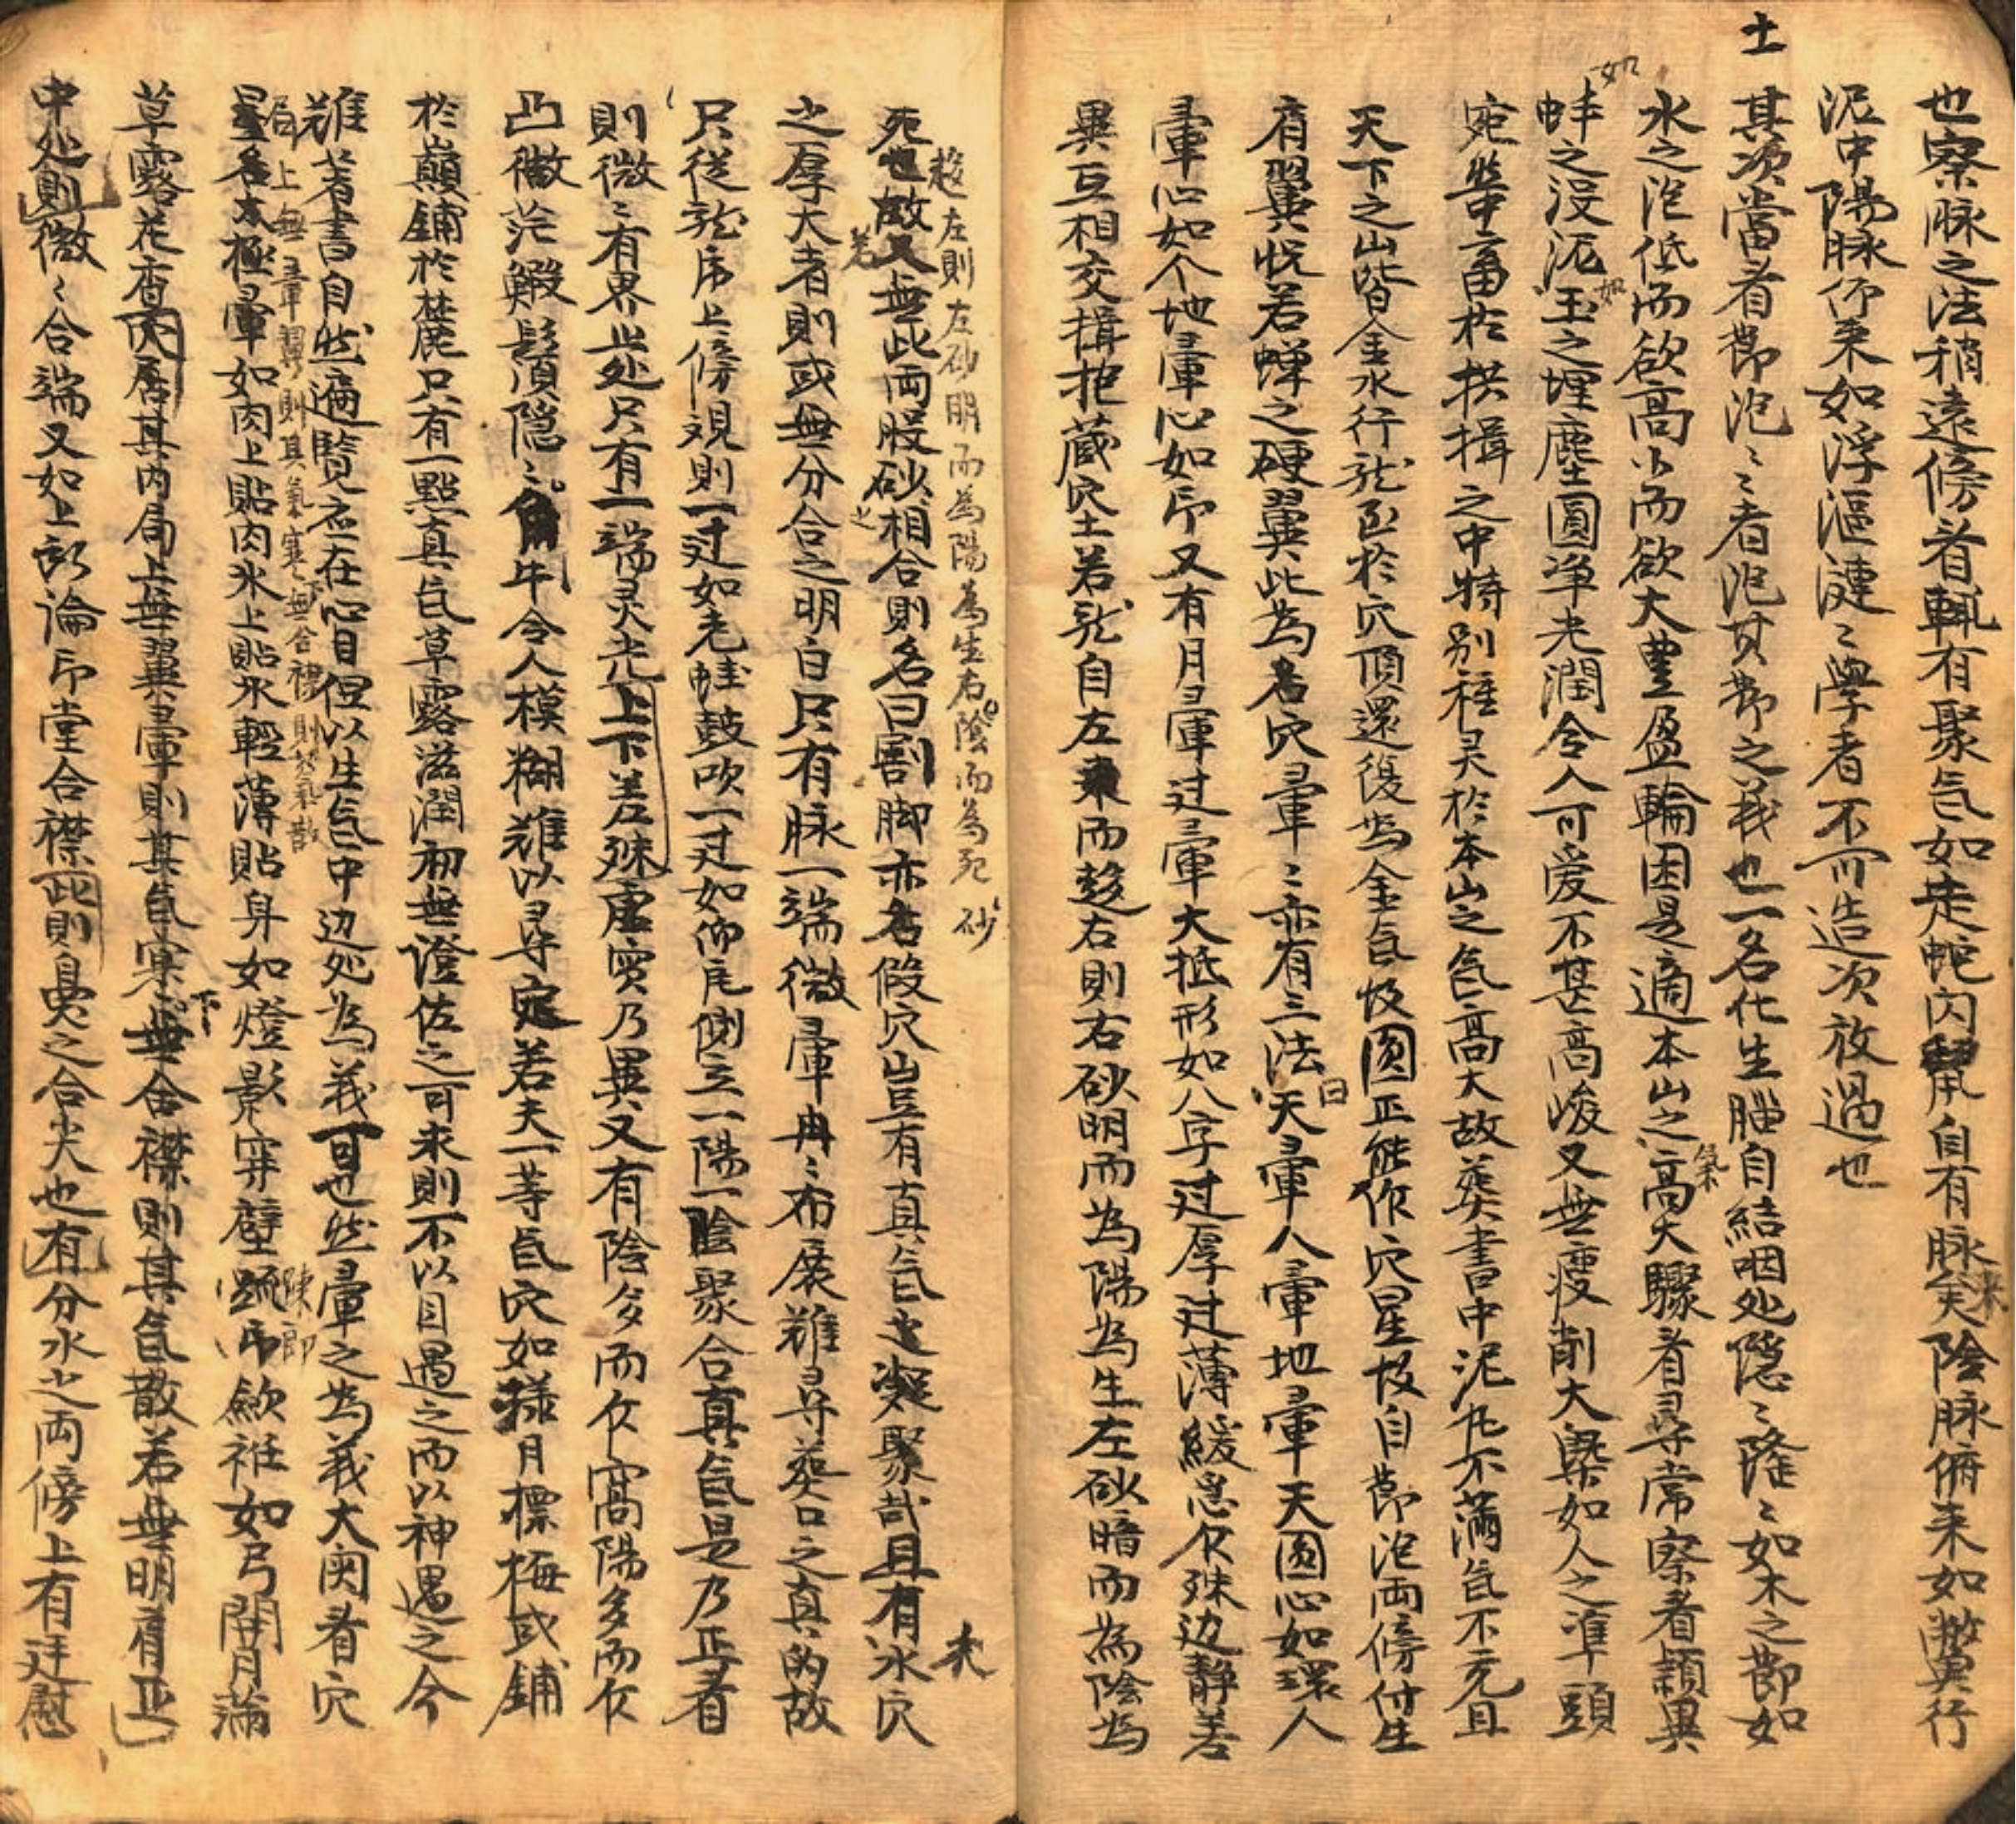 土
也察脉之法稍遠傍着輒有聚气如走蛇閃鼠自有脉矣陰脉俯来如獘蕒行
泥中陽脉仰来如浮漚漣〻學者不可造次放過也
其次當看節泡〻者泡其節之義也一名化生腦自結咽处隱〻隆〻如木之節如
水之泡低而欲高小而欲大豊盈輪囷是適本山之氣高大驟看尋常察看頴異
如蚌之没泥如玉之埋塵圓净光潤令人可爱不甚高峻又無瘦削大槩如人之準頭
宛然中畜於拱揖之中特别種灵於本山之气高大故葬書中泥丸不满气不完且
天下之山皆金水行龍至於穴頂還復為金气故圓正能作穴星故自節泡両傍付生
有翼恍若蟬之硬翼此為名穴暈〻亦有三法曰天暈人暈地暈天圓心如環人
暈心如个地暈心如节又有月暈过暈大抵形如八字过厚过薄緩急仅殊边静若
異互相交揖抱蔵穴土若龍自左来而趍右則右砂明而為陽為生左砂暗而為陰為
趍左則左砂明而為陽為生右陰而為死 砂
死也故又若無此両股砂之相合則名曰割脚亦名假穴岂有真气之凝聚哉且有冰穴
未
之厚大者則或無分合之明白只有脉一端微暈冉〻布展難尋葬口之真的故
只従龍虎上傍視則一过如老蛙鼓吹一过如仰瓦侧立一陽一陰聚合真气是乃正看
則微〻有界止处只有一端灵光上下差殊虚实乃異又有陰多而仅窩陽多而仅
凸微茫蝦鬚須隐〻角牛令人模糊難以尋定若夫一等气穴如様月標梅或鋪
於巔鋪於麓只有一點真气草露滋潤初無證佐之可求則不以目過之而以神遇之今
難著書自然遍覧在心目但以生气中边处為義可也然暈之為義大関看穴
局上無暈翼則其氣寒下無合襟則其氣散
星名太極暈如肉上貼肉水上貼水輕薄貼身如燈影穿壁踈節歛袵如弓開月满
陳 郎
草露花香内居其内局上無翼暈則其气寒下無合襟則其气散若無明肩正
中处則微〻合端又如上訟論印堂合襟此則臭之合尖也有分水之両傍上有廷慰